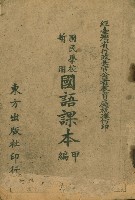 經臺灣省行政長官公署教育處核准付印
國民學校
暫用
國語課本
甲編
東方出版社印行